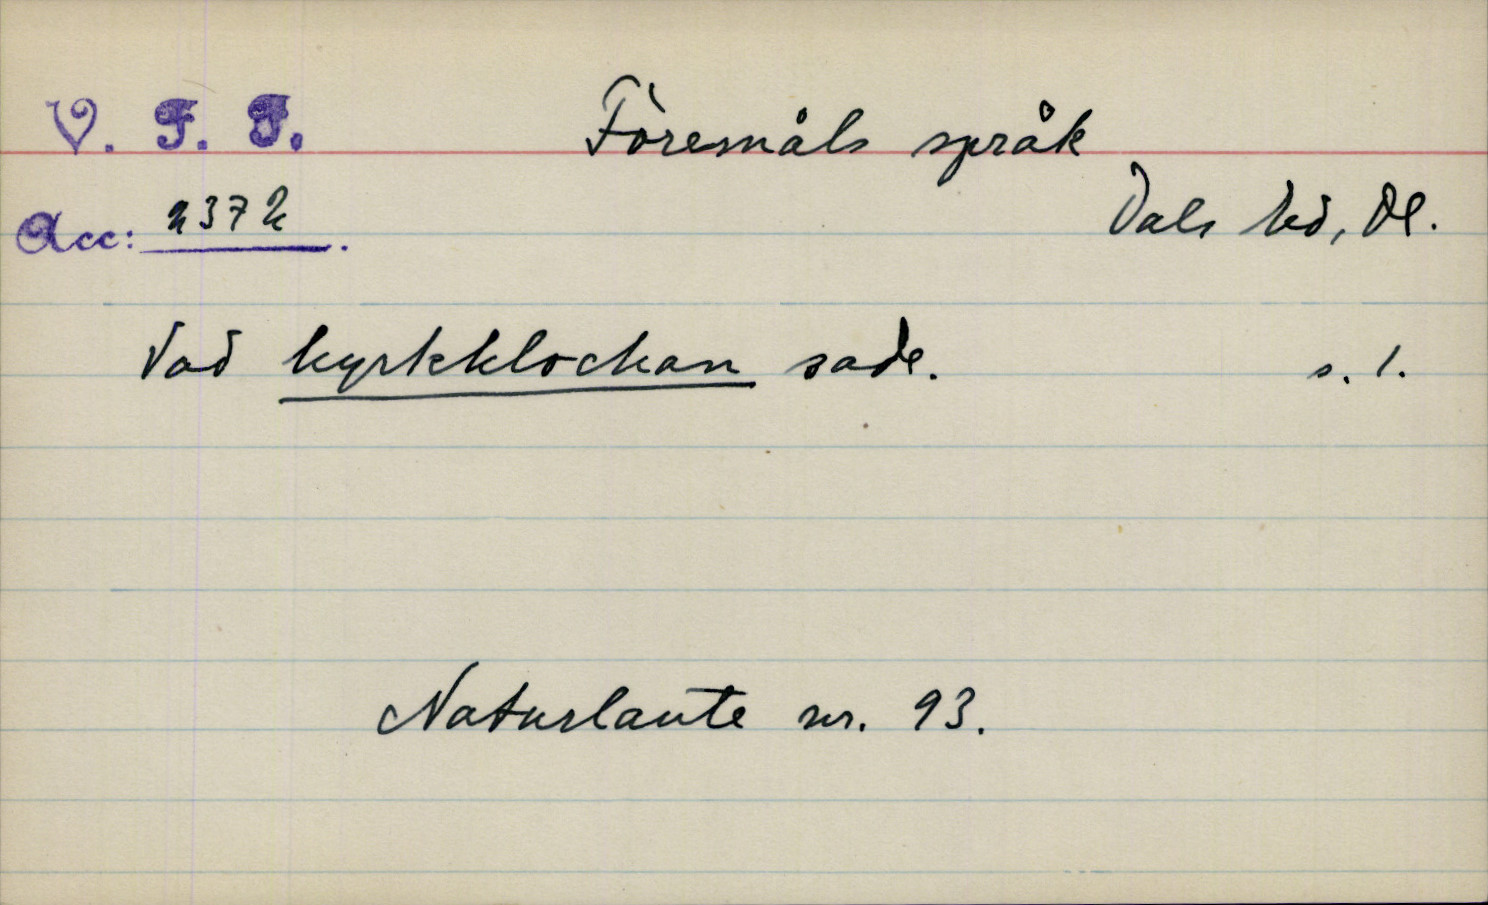 V. F. F.
Föremåls språk
Acc: 2372.
Dals hd, Dl.
Vad kyrkklockan sade. s. 1.
Naturlaute nr. 93.